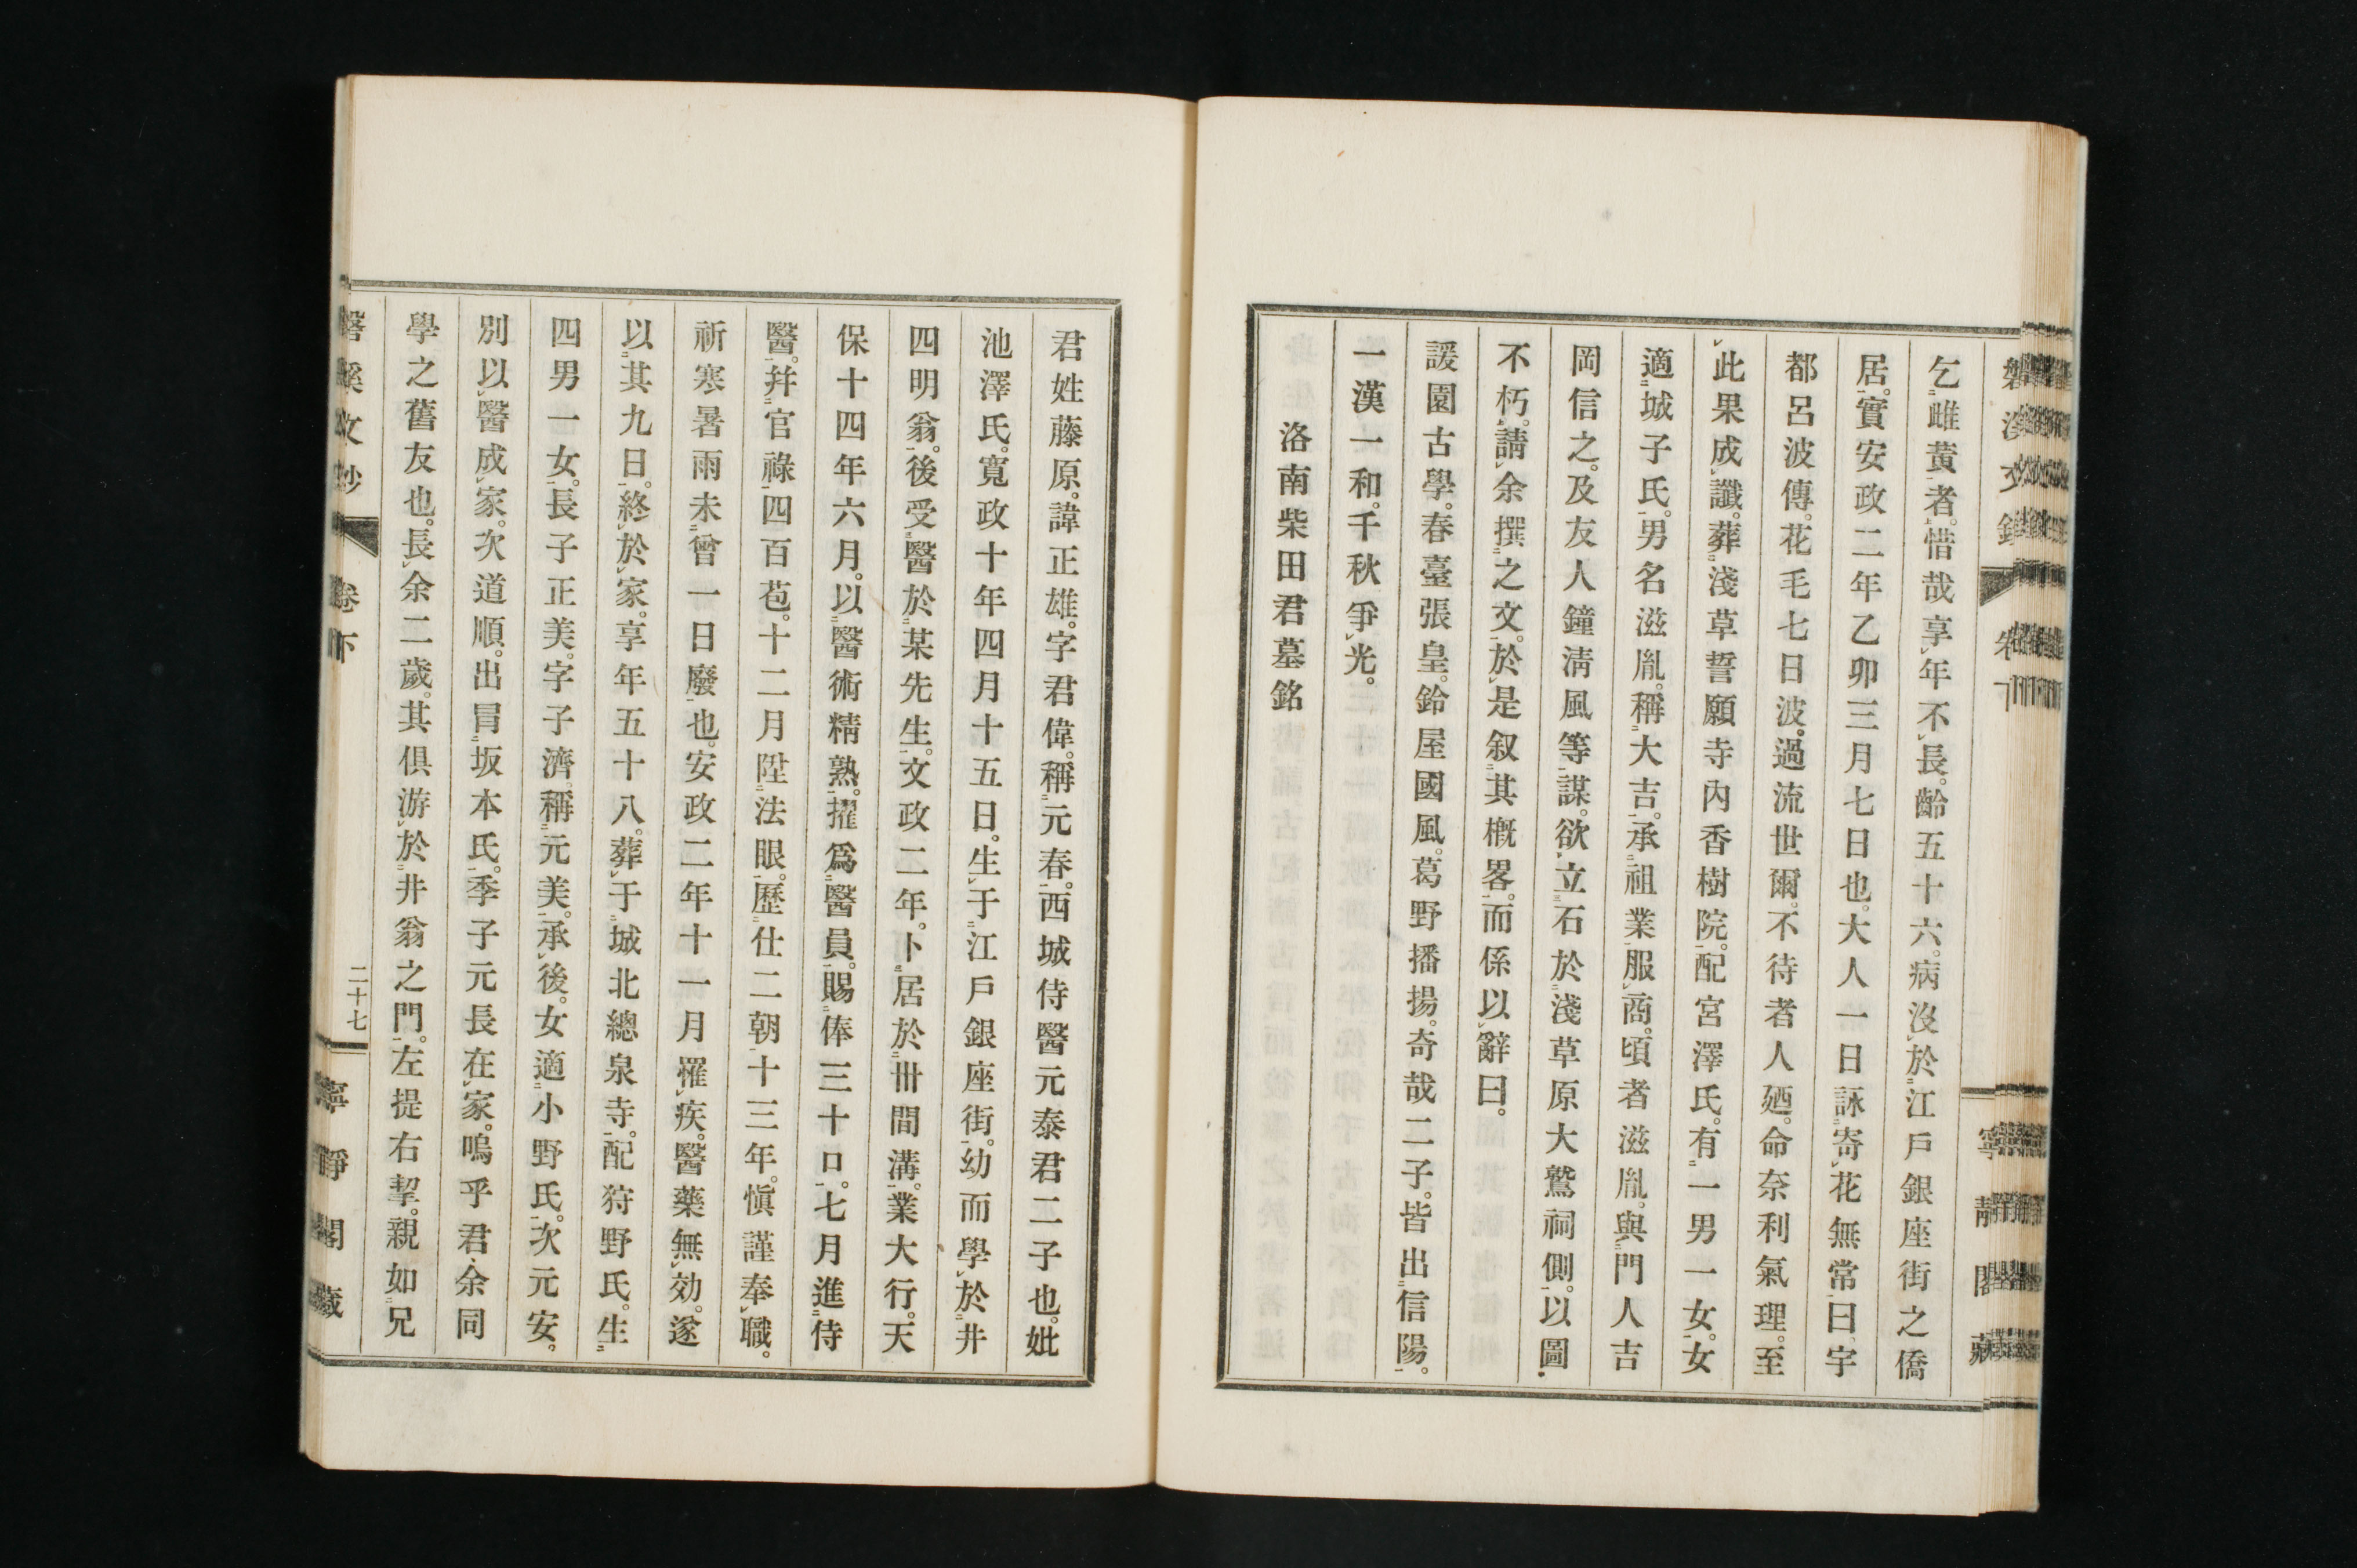 乞雌黃者。惜哉享年不長。齡五十六。病沒於江戶銀座街之僑
居。實安政二年乙卯三月七日也。大人一日詠寄花無常曰、宇
都呂波傳。花毛七日波。過流世爾。不待者人廼。命奈利氣理。至
此果成讖。葬淺草誓願寺內香樹院。配宮澤氏。有一男一女。女
適城子氏。男名滋胤。稱大吉。承祖業服商。頃者滋胤。與門人吉
岡信之。及友人鐘淸風等謀。欲立石於淺草原大鷲祠側。以圖
不朽。請余撰之文。於是叙其槪畧。而係以辭曰。
諼園古學。春臺張皇。鈴屋國風。葛野播揚。奇哉二子。皆出信陽。
一漢一和。千秋爭光。
洛南柴田君墓銘
君姓藤原。諱正雄。字君偉。稱元春。西城侍醫元泰君二子也。妣
池澤氏。寬政十年四月十五日。生于江戶銀座街。幼而學於井
四明翁。後受醫於某先生。文政二年。卜居於卌間溝。業大行。天
保十四年六月。以醫術精熟。擢爲醫員。賜俸三十口。七月進侍
醫。幷官祿四百苞。十二月陞法眼。歷仕二朝十三年。愼謹奉職。
祈寒暑雨未曾一日廢也。安政二年十一月罹疾。醫藥無効。遂
以其九日。終於家。享年五十八。葬于城北總泉寺。配狩野氏。生
四男一女。長子正美。字子濟。稱元美。承後。女適小野氏。次元安。
別以醫成家。次道順。出冒坂本氏。季子元長在家。嗚乎君余同
學之舊友也。長余二歲。其俱游於井翁之門。左提右挈。親如兄
磐溪文鈔
卷下
二十七
寧靜閣藏